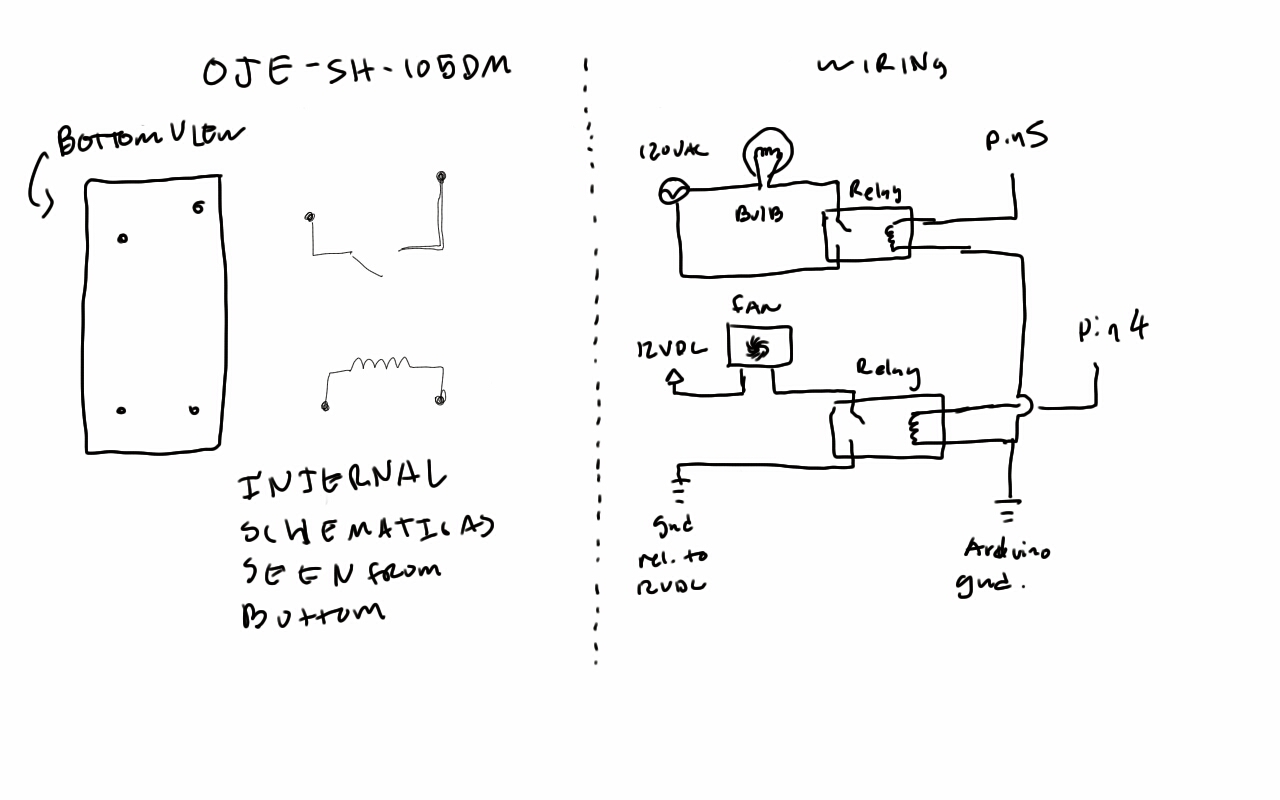 OJE-SH-105DM
BOTTOM VIEW
INTERNAL
SCHEMATIC AS
SEEN FROM
BOTTOM
WIRING
120VAC
BULB
Relay
pin 5
FAN
12VDC
Relay
pin 4
gnd
rel. to
12VDC
Arduino
gnd.